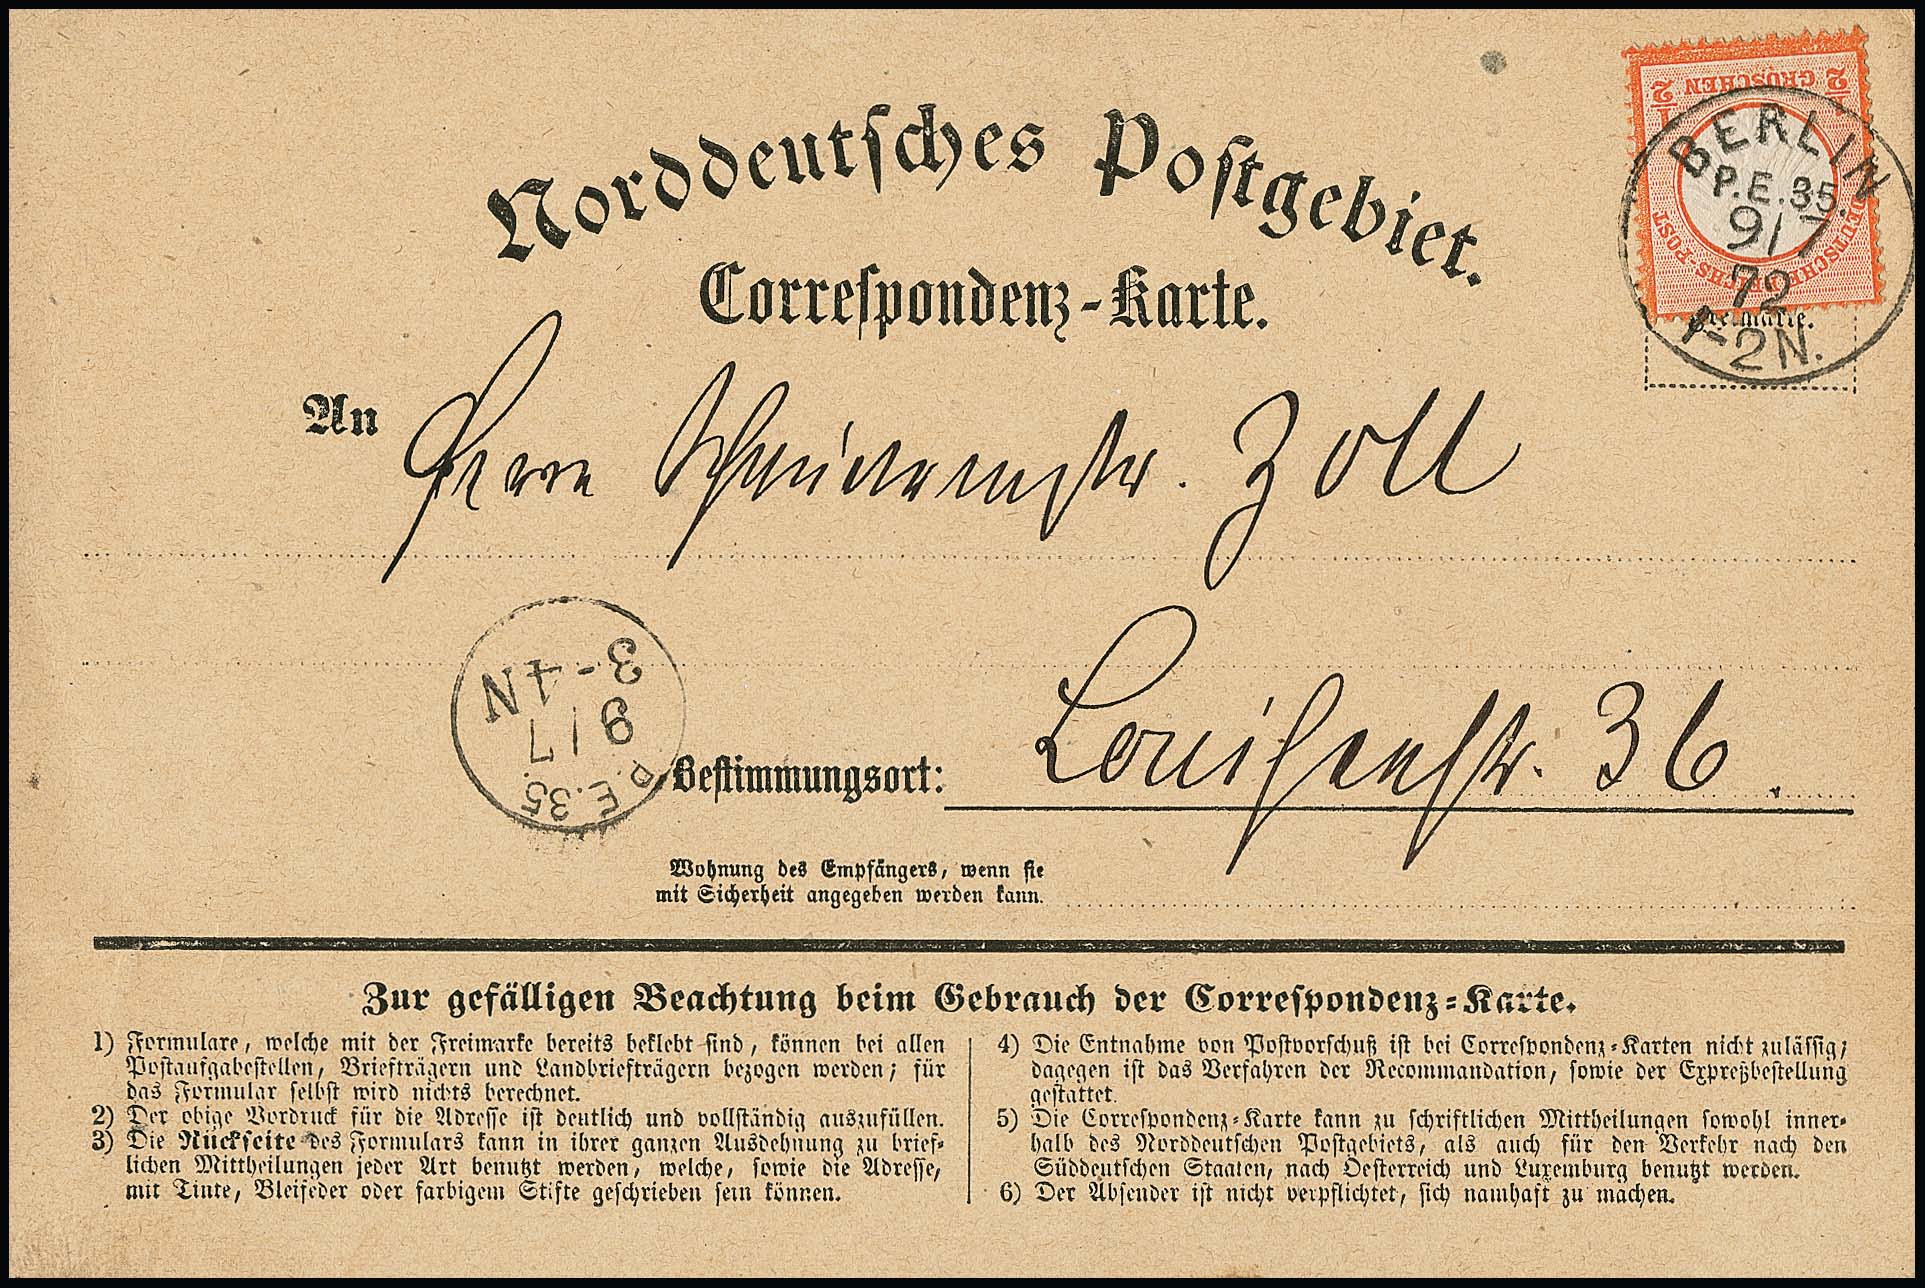 Norddeutsches Postgebiet.
Correspondenz-Karte.
1/2 GROSCHEN 1/2
DEUTSCHE REICHS-POST
BERLIN
P.E.35.
9/7
72
1-2N.
Freimarke.
An Herrn Schneidermstr. Zoll
3-4N
9/7
P.E.35.
Bestimmungsort: Louisenstr. 36.
Wohnung des Empfängers, wenn sie
mit Sicherheit angegeben werden kann.
Zur gefälligen Beachtung beim Gebrauch der Correspondenz-Karte.
1) Formulare, welche mit der Freimarke bereits beklebt sind, können bei allen
Postaufgabestellen, Briefträgern und Landbriefträgern bezogen werden; für
das Formular selbst wird nichts berechnet.
2) Der obige Vordruck für die Adresse ist deutlich und vollständig auszufüllen.
3) Die Rückseite des Formulars kann in ihrer ganzen Ausdehnung zu brief-
lichen Mittheilungen jeder Art benutzt werden, welche, sowie die Adresse,
mit Tinte, Bleifeder oder farbigem Stifte geschrieben sein können.
4) Die Entnahme von Postvorschuß ist bei Correspondenz-Karten nicht zulässig;
dagegen ist das Verfahren der Recommandation, sowie der Expreßbestellung
gestattet.
5) Die Correspondenz-Karte kann zu schriftlichen Mittheilungen sowohl inner-
halb des Norddeutschen Postgebiets, als auch für den Verkehr nach den
Süddeutschen Staaten, nach Oesterreich und Luxemburg benutzt werden.
6) Der Absender ist nicht verpflichtet, sich namhaft zu machen.